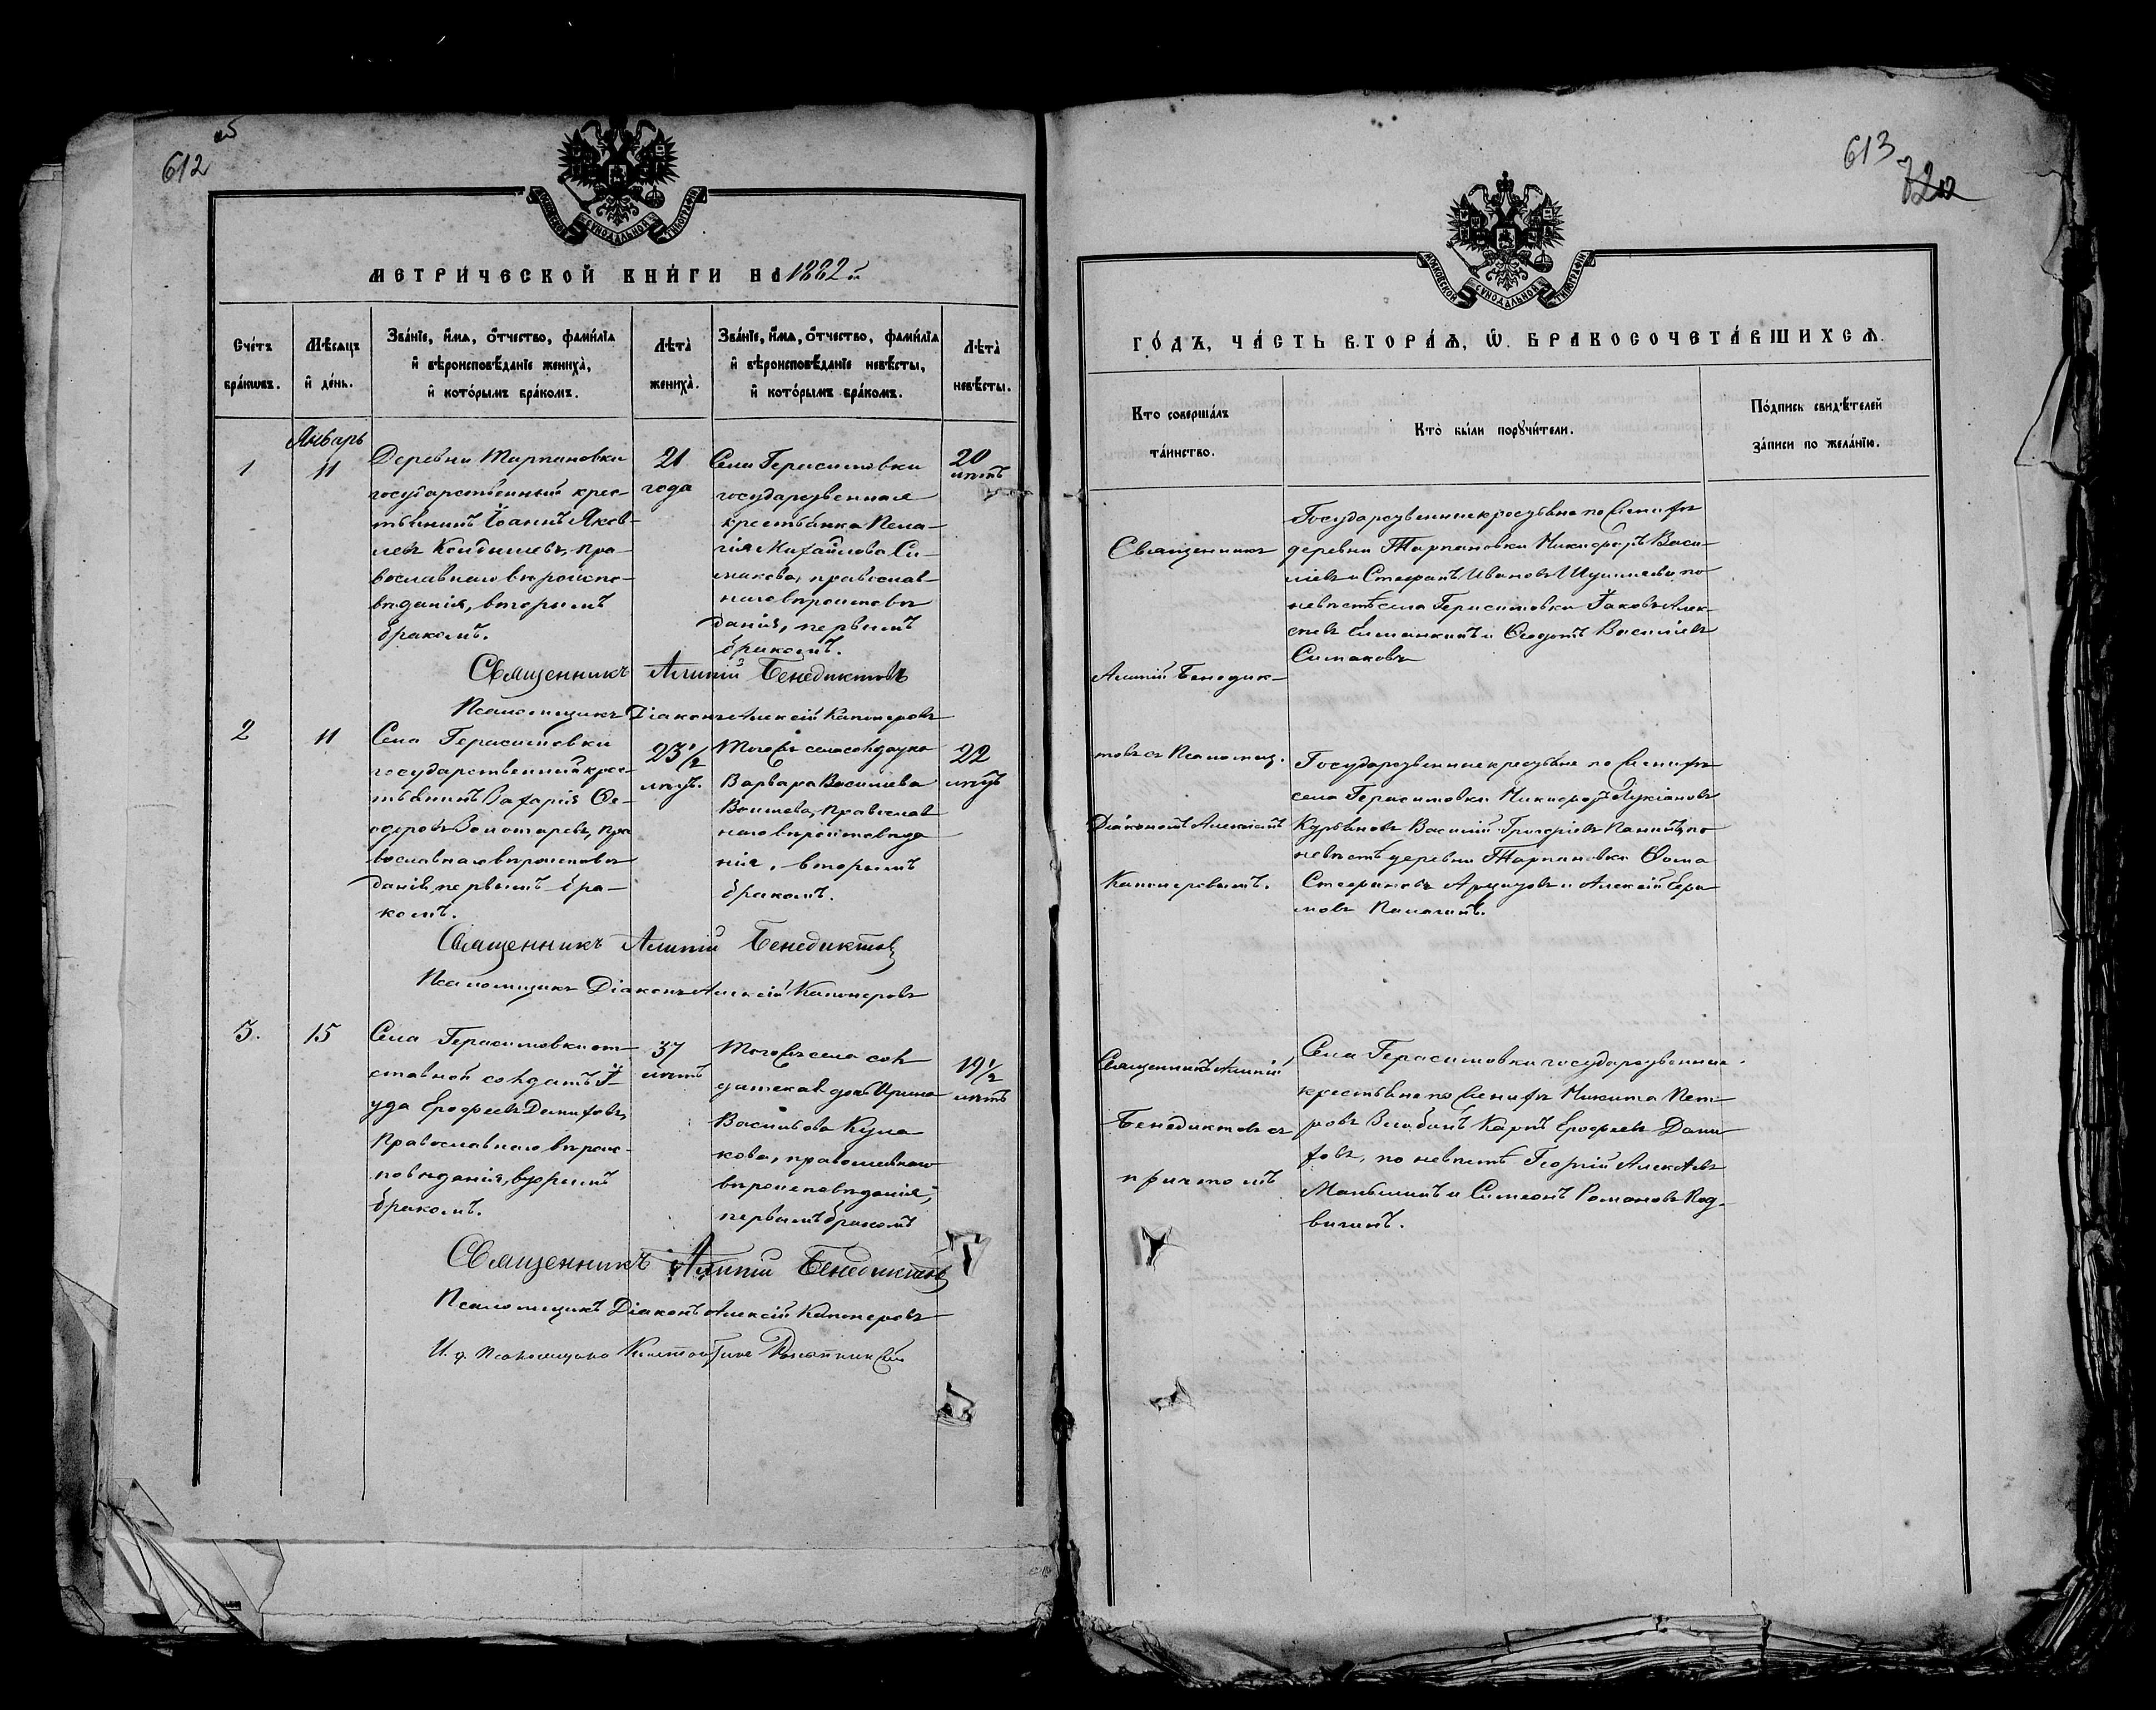 612
МОСКОВСКОЙ СѴНОДАЛЬНОЙ ТИПОГРАФІИ
МЕТРИ́ЧЕСКОЙ КНИ́ГИ НА 1882 й
Сче́тъ бра́кωвъ.
Мѣ́сяцъ и҆ де́нь.
Зва́нїе, и҆́мя, ѻ҆́тчество, фами́лїя
и҆ вѣроисповѣ́данїе жениха̀,
и҆ кото́рымъ бра́комъ.
Лѣта̀ жениха̀.
Зва́нїе, и҆́мя, ѻ҆́тчество, фами́лїя
и҆ вѣроисповѣ́данїе невѣ́сты,
и҆ кото́рымъ бра́комъ.
Лѣта̀ невѣ́сты.
Январь
1
11
Деревни Тарпановки
государственный крес-
тьянинъ Іоаннъ Яков-
левъ Кондышевъ, пра-
вославнаго вѣроиспо-
вѣданія, вторымъ
бракомъ.
21
года
Села Герасимовки
государственная
крестьянка Пела-
гія Михайлова Си-
макова, православ-
наго вѣроисповѣ
данія, первымъ
бракомъ.
20
лѣтъ
Священникъ Алипій Бенедиктовъ
Псаломщикъ Діаконъ Алексій Канонеровъ
2
11
Села Герасимовки
государственный крес-
тьянинъ Захарія Ѳе-
одоровъ Золотаревъ, пра
вославнаго вѣроисповѣ
данія, первымъ бра-
комъ.
23 1/2
лѣтъ.
Тогожъ села солдатка
Варвара Васильева
православ
наго вѣроисповѣда
нія, вторымъ
бракомъ.
22
лѣтъ
Священникъ Алипій Бенедиктовъ
Псаломщикъ Діаконъ Алексій Канонеровъ
3.
15
Села Герасимовки от-
ставной солдатъ І-
уда Ерофеевъ Даниловъ,
православнаго вѣроис-
повѣданія, вторымъ
бракомъ.
37
лѣтъ
Тогожъ села сол
датская дочь Ирина
Васильева Кула
кова, православнаго
вѣроисповѣданія,
первымъ бракомъ
19 1/2
лѣтъ
Священникъ Алипій Бенедиктовъ
Псаломщикъ Діаконъ Алексій Канонеровъ
И. д. Псаломщика
613
МОСКОВСКОЙ СѴНОДАЛЬНОЙ ТИПОГРАФІИ
ГО́ДЪ, ЧА́СТЬ ВТОРА́Я, Ѡ҆ БРАКОСОЧЕТА́ВШИХСЯ.
Кто̀ соверша́лъ
та́инство.
Кто̀ бы́ли порꙋчи́тели.
По́дпись свидѣ́телей
за́писи по жела́нїю.
Священникъ
Алипій Бенедик-
товъ съ Псаломщ.
Діакономъ Алексіемъ
Канонеровымъ.
Государственные крестьяне по женихѣ
деревни Тарпановки Никифоръ Васи-
ліевъ и Стефанъ Ивановъ по
невѣстѣ села Герасимовки Іаковъ Алек-
сѣевъ и Ѳедотъ Василіевъ
Симаковъ
Государственные крестьяне по женихѣ
села Герасимовки Никифоръ Лукіановъ
Василій Григоріевъ Панинъ, по
невѣстѣ деревни Тарпановки Ѳома
Стефановъ и Алексій
Священникъ Алипій
Бенедиктовъ съ
причтомъ
Села Герасимовки государственные
крестьяне по женихѣ Никита Пет-
ровъ Карпъ Ерофеевъ Дани
ловъ, по невѣстѣ Георгій Алексѣевъ
Маньшинъ и Симеонъ Романовъ Под-